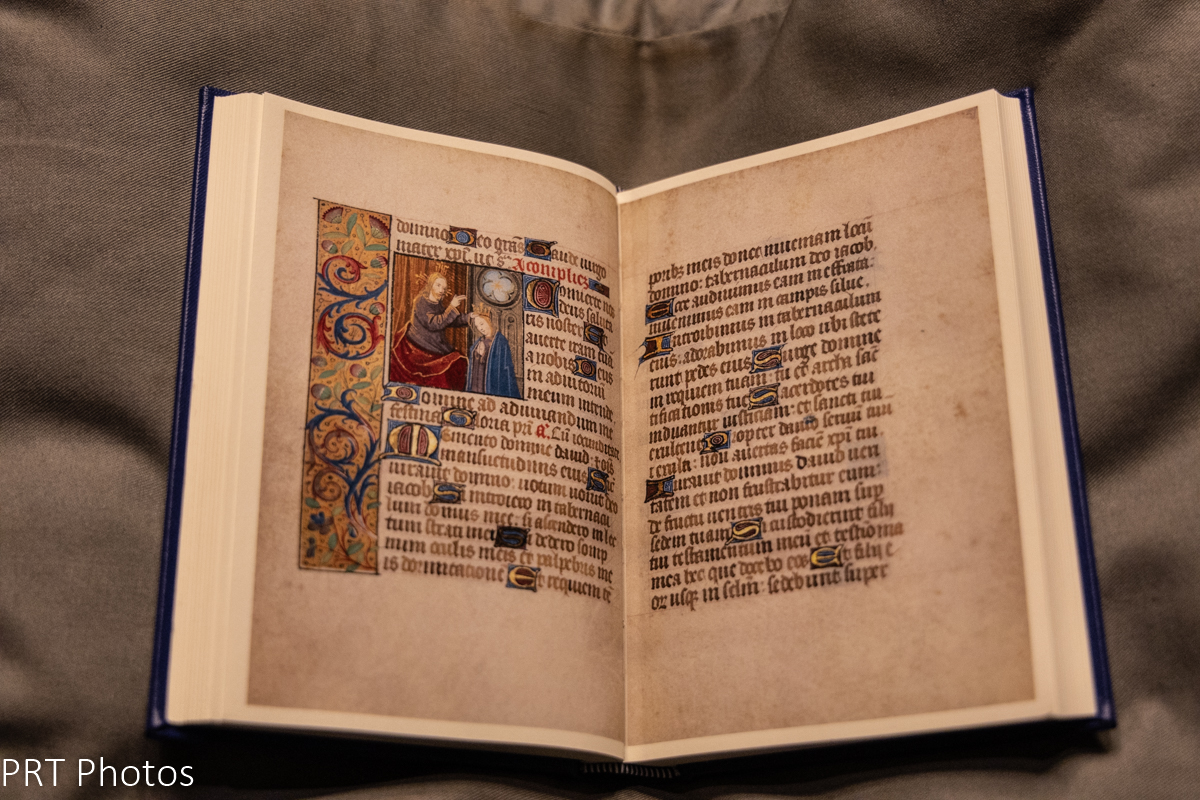 domino Deo grās Gaude virgo
mater xpi. ad complie
Converte nos
deus saluta
ris noster Et
averte iram tuā
a nobis Deus
in adiutoriū
meum intende
Domine ad adiuvandum me
festina Gloria pr̄i a. Cū iocunditate
Memento domine david: et oīs
mansuetudinis eius Sic
iuravit domino: votum vovit deo
iacob Si introiero in tabernacu
lum domus mee: si ascendero in lec
tum strati mei Si dedero somp
num oculis meis et palpebris me
is dormitatione Et requiem tē
poribz meis donec inueniam locū
domino: tabernaculum deo iacob.
Ecce audivimus eam in effrata:
invenimus eam in campis silve.
Introibimus in tabernaculum
eius: adorabimus in loco ubi stete
runt pedes eius Surge domine
in requiem tuam: tu et archa sāc
tificationis tue Sacerdotes tui
induantur iustitiam: et sancti tui
exultent Propter david servū tuū
non avertas faciē xpi tui
Iuravit dominus david veri
tatem et non frustrabitur eum:
de fructu ventris tui ponam sup
sedem tuam Si custodierint filij
tui testamentum meū et testiōma
mea hec que docebo eos Et filij e
or usqz in sclm: sedebunt super
PRT Photos